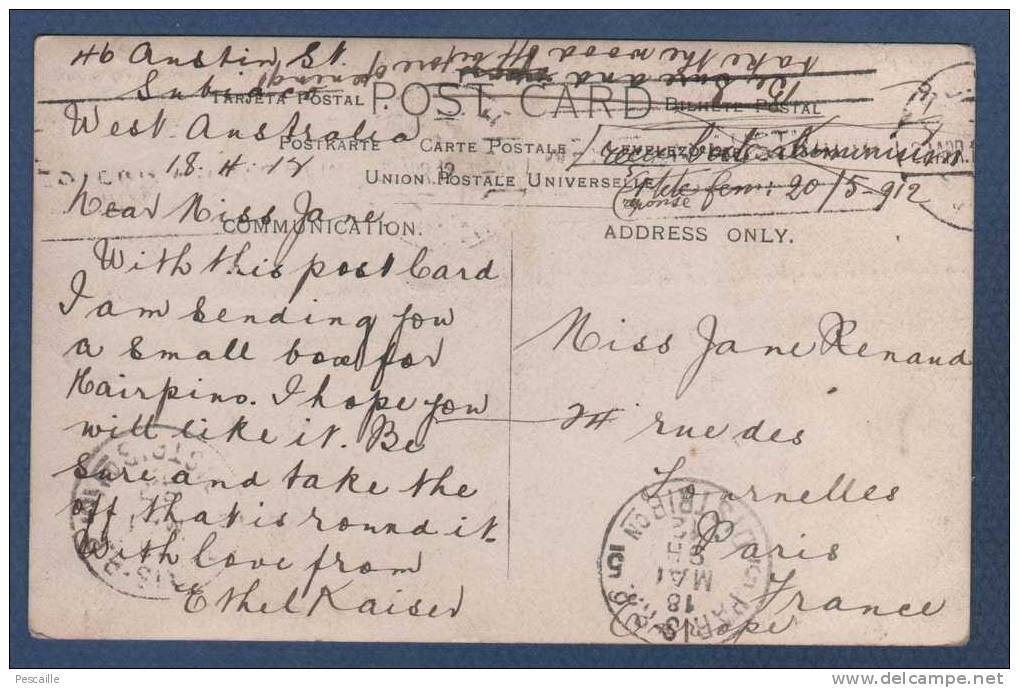 46 Austin St.
Subiaco
West. Australia
18. 4. 12
Be sure and
take the wood off before opening
TARJETA POSTAL
POST CARD
BILHETE POSTAL
POSTKARTE CARTE POSTALE
UNION POSTALE UNIVERSELLE
reçu boite aluminium
réponse
20/5-912
COMMUNICATION.
ADDRESS ONLY.
Dear Miss Jane,
With this post Card
I am sending you
a small box for
Hairpins. I hope you
will like it. Be
sure and take the
off that is round it.
With love from
Ethel Kaiser
Miss Jane Renaud
24 rue des
Tournelles
Paris
France
Europe
PARIS
DISTRIBON
18
MAI
Pescaille
www.delcampe.net